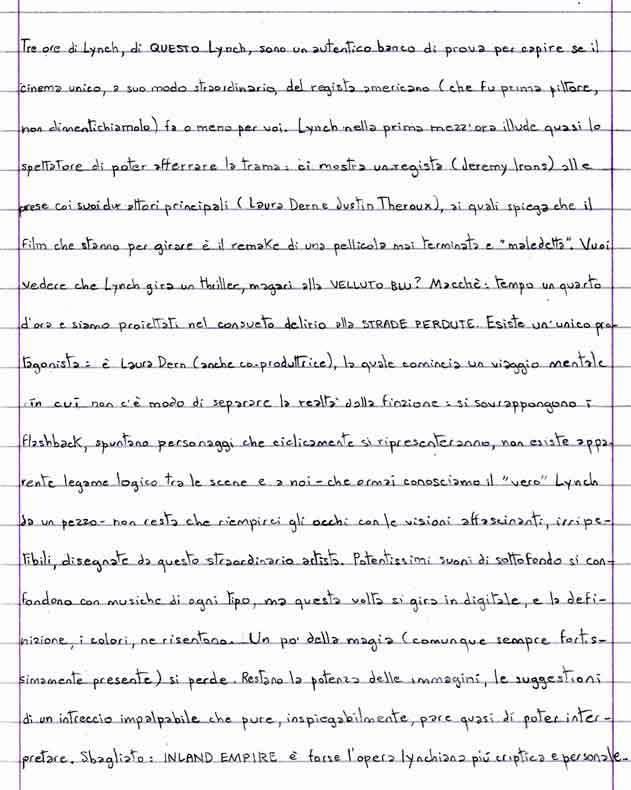 Tre ore di Lynch, di QUESTO Lynch, sono un autentico banco di prova per capire se il
cinema unico, a suo modo straordinario, del regista americano (che fu prima pittore,
non dimentichiamolo) fa o meno per voi. Lynch nella prima mezz'ora illude quasi lo
spettatore di poter afferrare la trama: ci mostra un regista (Jeremy Irons) alle
prese coi suoi due attori principali (Laura Dern e Justin Theroux), ai quali spiega che il
film che stanno per girare è il remake di una pellicola mai terminata e "maledetta". Vuoi
vedere che Lynch gira un thriller, magari alla VELLUTO BLU? Macchè: tempo un quarto
d'ora e siamo proiettati nel consueto delirio alla STRADE PERDUTE. Esiste un'unico pro-
tagonista: è Laura Dern (anche co-produttrice), la quale comincia un viaggio mentale
in cui non c'è modo di separare la realtà dalla finzione: si sovrappongono i
flashback, spuntano personaggi che ciclicamente si ripresenteranno, non esiste appa-
rente legame logico tra le scene e a noi - che ormai conosciamo il "vero" Lynch
da un pezzo - non resta che riempirci gli occhi con le visioni affascinanti, irripe-
tibili, disegnate da questo straordinario artista. Potentissimi suoni di sottofondo si con-
fondono con musiche di ogni tipo, ma questa volta si gira in digitale, e la defi-
nizione, i colori, ne risentono. Un po' della magia (comunque sempre fortis-
simamente presente) si perde. Restano la potenza delle immagini, le suggestioni
di un intreccio impalpabile che pure, inspiegabilmente, pare quasi di poter inter-
pretare. Sbagliato: INLAND EMPIRE è forse l'opera lynchiana più criptica e personale.